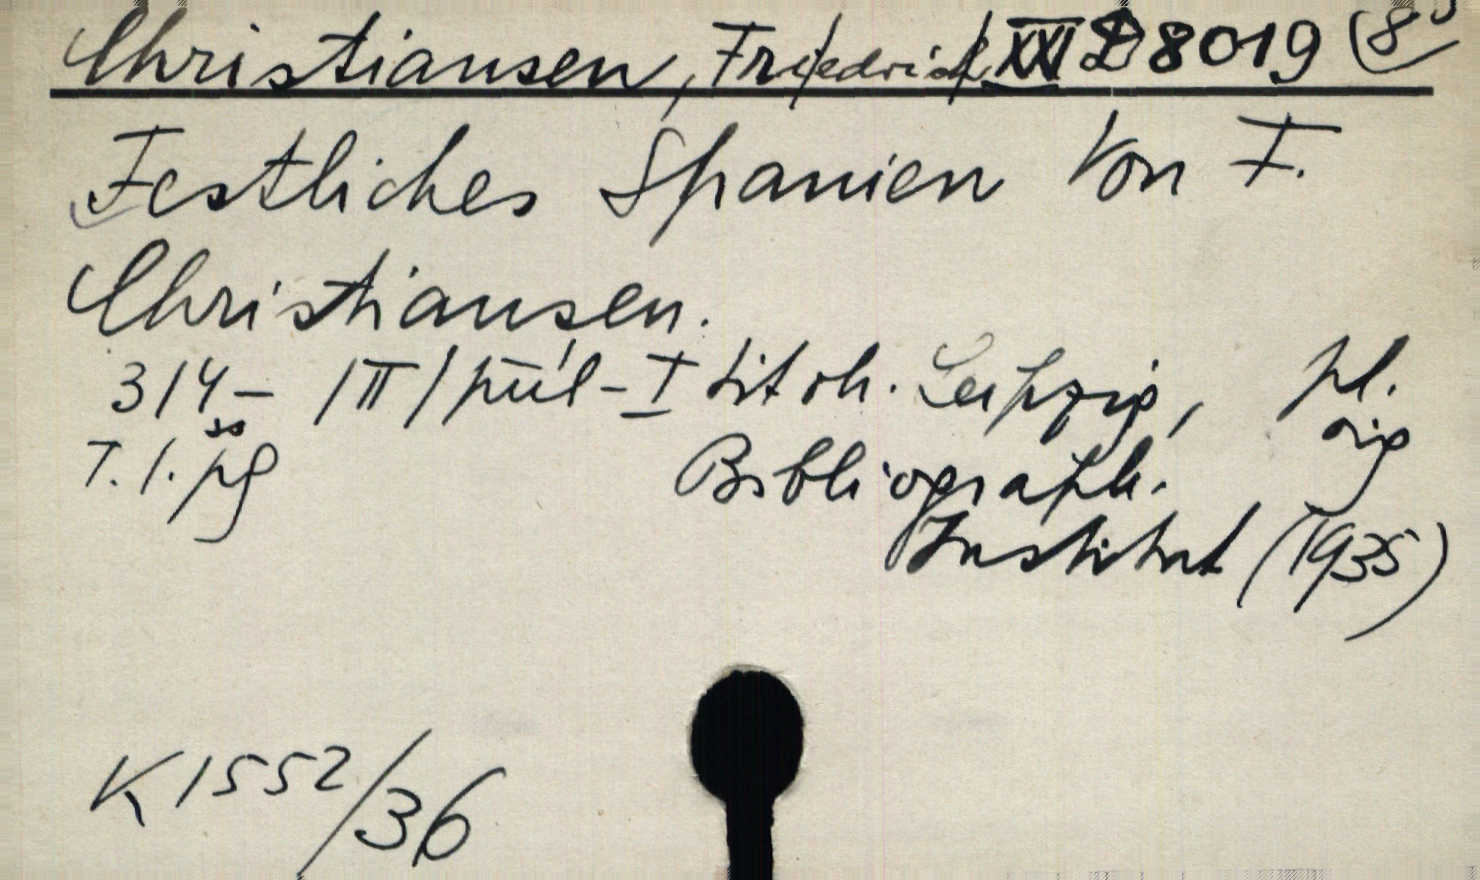 Christiansen, Fr/iedrich/ XXI D 8019 (8°
Festliches Spanien Von F.
Christiansen.
314- /II/ půl-I tit ob. Leipzig, pl.
orig
T. l. pg
Bibliograph.
Institut (1935)
K 1552/36